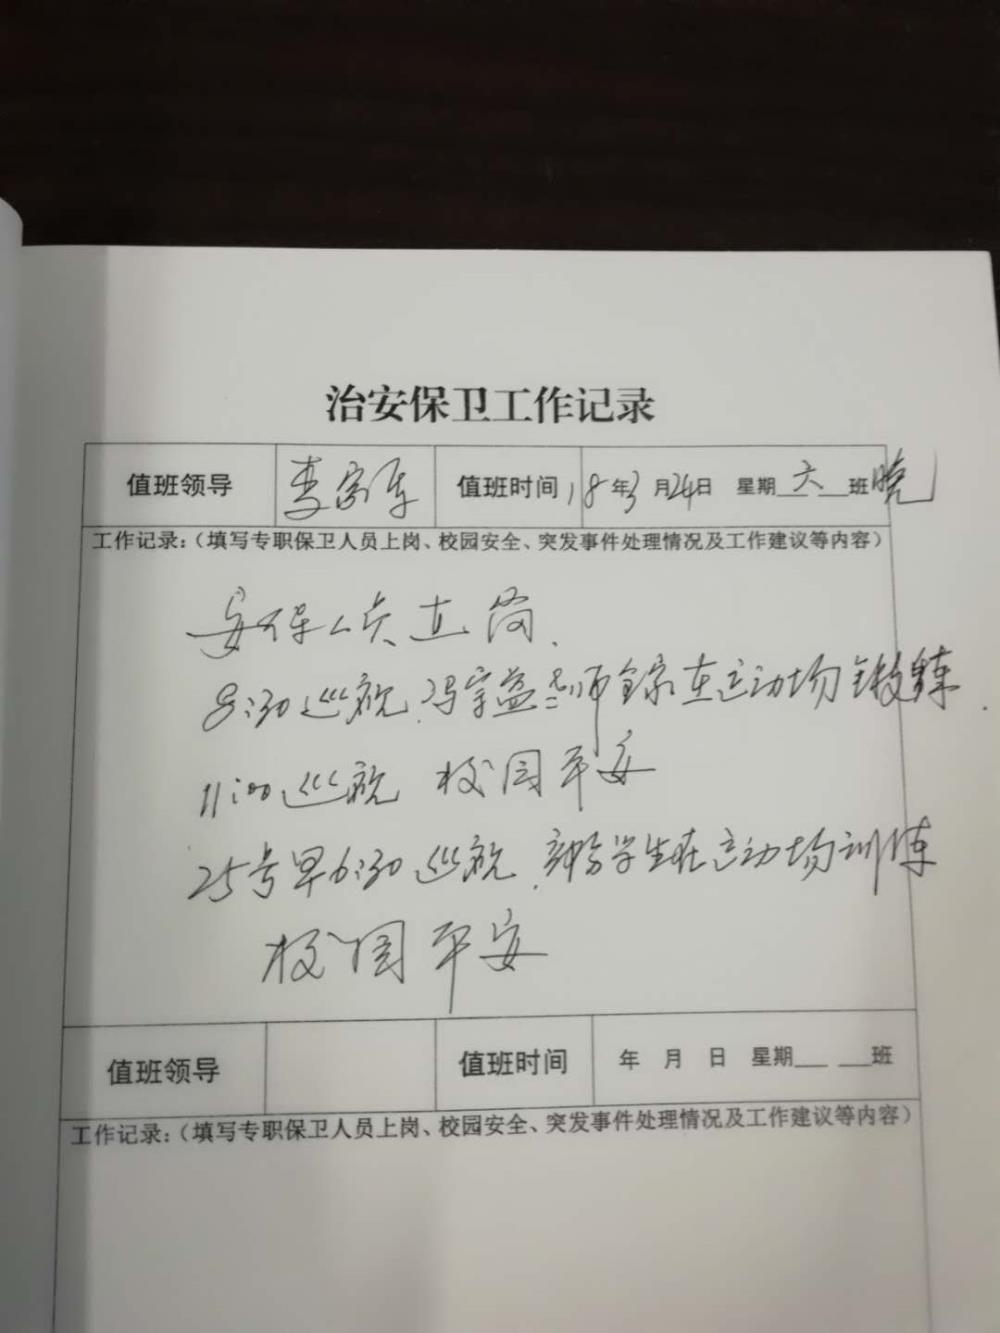 治安保卫工作记录
值班领导 李家年 值班时间 18年3月24日 星期六 班晚
工作记录:(填写专职保卫人员上岗、校园安全、突发事件处理情况及工作建议等内容)
安保人员在岗.
8:30巡视.冯宗益老师全家在运动场锻练.
11:00巡视 校园平安
25号早6:30巡视.部份学生在运动场训练
校园平安
值班领导 值班时间 年 月 日 星期___ ___班
工作记录:(填写专职保卫人员上岗、校园安全、突发事件处理情况及工作建议等内容)